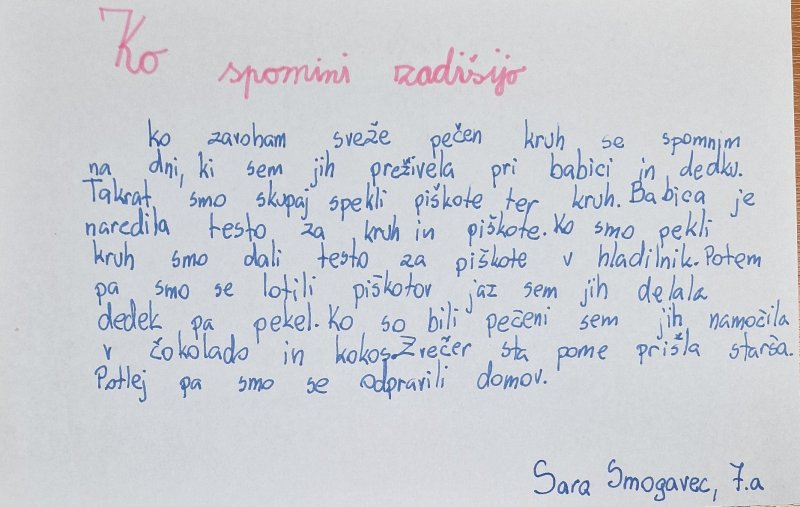 Ko spomini zadišijo
Ko zavoham sveže pečen kruh se spomnim
na dni, ki sem jih preživela pri babici in dedku.
Takrat smo skupaj spekli piškote ter kruh. Babica je
naredila testo za kruh in piškote. Ko smo pekli
kruh smo dali testo za piškote v hladilnik. Potem
pa smo se lotili piškotov jaz sem jih delala
dedek pa pekel. Ko so bili pečeni sem jih namočila
v čokolado in kokos. Zvečer sta pome prišla starša.
Potlej pa smo se odpravili domov.
Sara Smogavec, 7.a